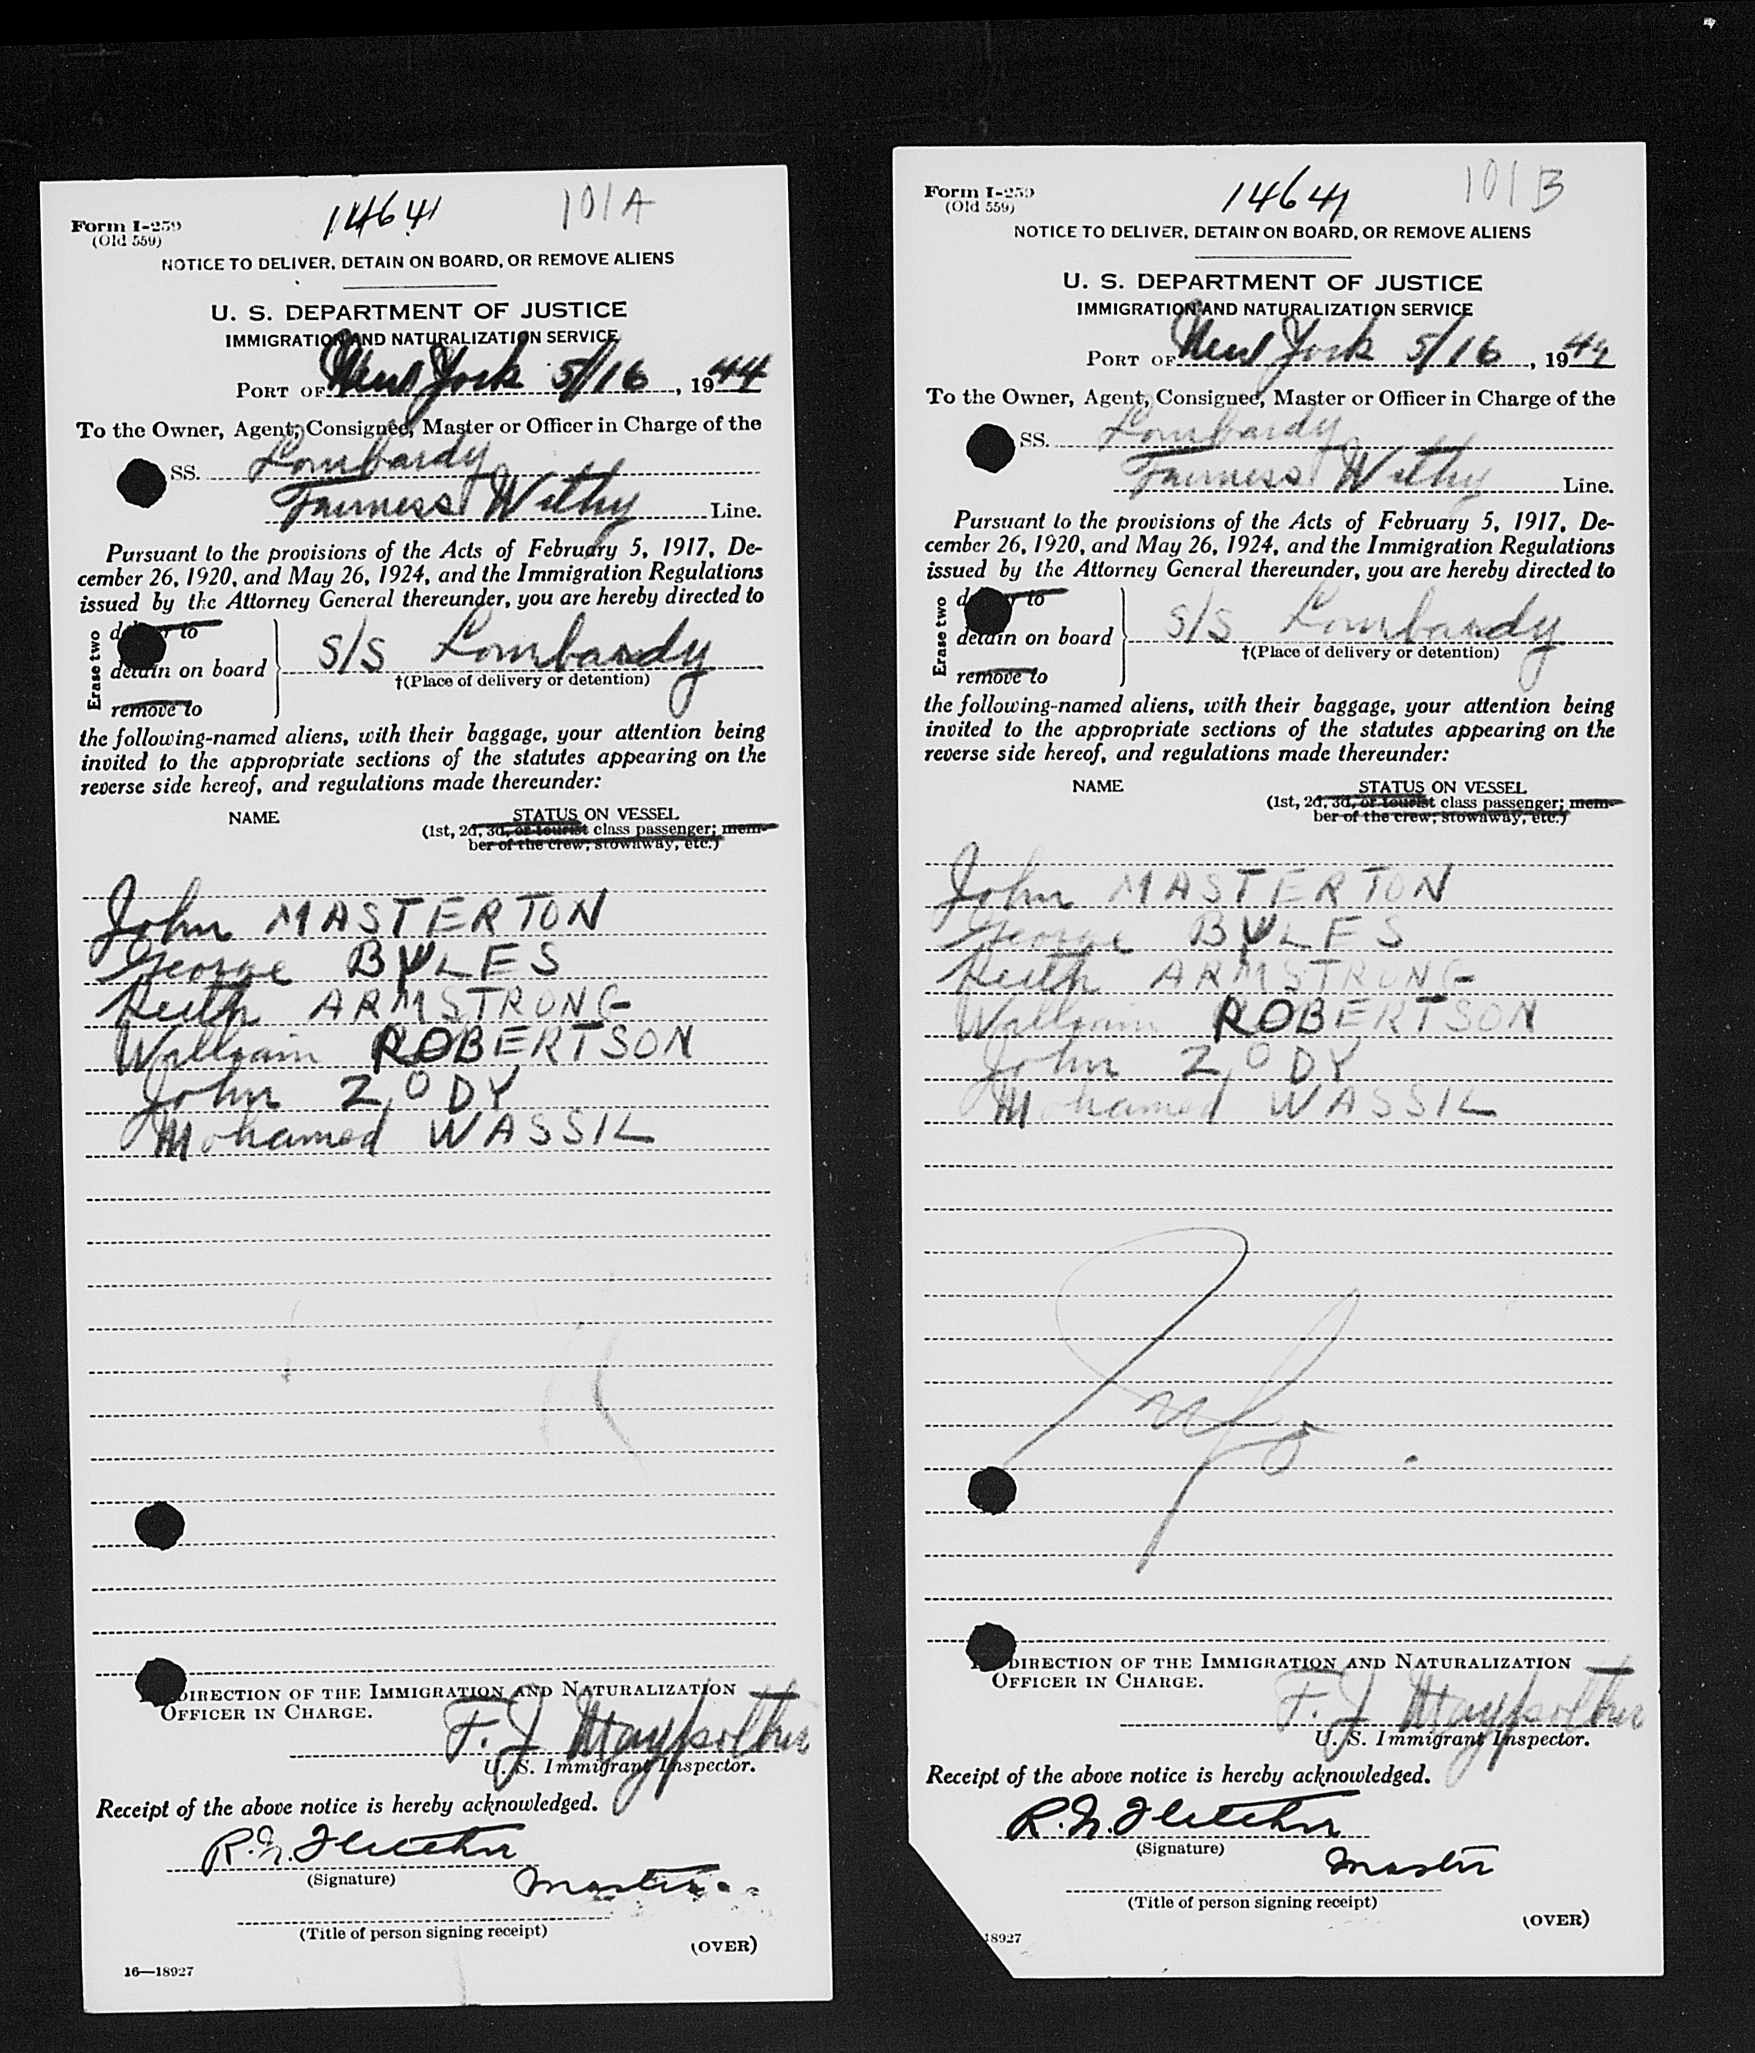 14641 101A
Form I-259
(Old 559)
NOTICE TO DELIVER, DETAIN ON BOARD, OR REMOVE ALIENS
U. S. DEPARTMENT OF JUSTICE
IMMIGRATION AND NATURALIZATION SERVICE
PORT OF New York 5/16, 1944
To the Owner, Agent, Consignee, Master or Officer in Charge of the
SS. Lombardy
Furness Withy Line.
Pursuant to the provisions of the Acts of February 5, 1917, De-
cember 26, 1920, and May 26, 1924, and the Immigration Regulations
issued by the Attorney General thereunder, you are hereby directed to
Erase two
to
detain on board
remove to
S/S Lombardy
†(Place of delivery or detention)
the following-named aliens, with their baggage, your attention being
invited to the appropriate sections of the statutes appearing on the
reverse side hereof, and regulations made thereunder:
NAME STATUS ON VESSEL
(1st, 2d, 3d, or tourist class passenger; mem-
ber of the crew; stowaway, etc.)
John MASTERTON
George BYLES
Keith ARMSTRONG
William ROBERTSON
John ZODY
Mohamed WASSIL
DIRECTION OF THE IMMIGRATION AND NATURALIZATION
OFFICER IN CHARGE.
F. J
U. S. Immigrant Inspector.
Receipt of the above notice is hereby acknowledged.
R. N. Fletcher
(Signature)
Master
(Title of person signing receipt)
(OVER)
16—18927
14641 101B
Form I-259
(Old 559)
NOTICE TO DELIVER, DETAIN ON BOARD, OR REMOVE ALIENS
U. S. DEPARTMENT OF JUSTICE
IMMIGRATION AND NATURALIZATION SERVICE
PORT OF New York 5/16, 1944
To the Owner, Agent, Consignee, Master or Officer in Charge of the
SS. Lombardy
Furness Withy Line.
Pursuant to the provisions of the Acts of February 5, 1917, De-
cember 26, 1920, and May 26, 1924, and the Immigration Regulations
issued by the Attorney General thereunder, you are hereby directed to
Erase two
to
detain on board
remove to
S/S Lombardy
†(Place of delivery or detention)
the following-named aliens, with their baggage, your attention being
invited to the appropriate sections of the statutes appearing on the
reverse side hereof, and regulations made thereunder:
NAME STATUS ON VESSEL
(1st, 2d, 3d, or tourist class passenger; mem-
ber of the crew; stowaway, etc.)
John MASTERTON
George BYLES
Keith ARMSTRONG
William ROBERTSON
John ZODY
Mohamed WASSIL
DIRECTION OF THE IMMIGRATION AND NATURALIZATION
OFFICER IN CHARGE.
F. J
U. S. Immigrant Inspector.
Receipt of the above notice is hereby acknowledged.
R. N. Fletcher
(Signature)
Master
(Title of person signing receipt)
(OVER)
18927